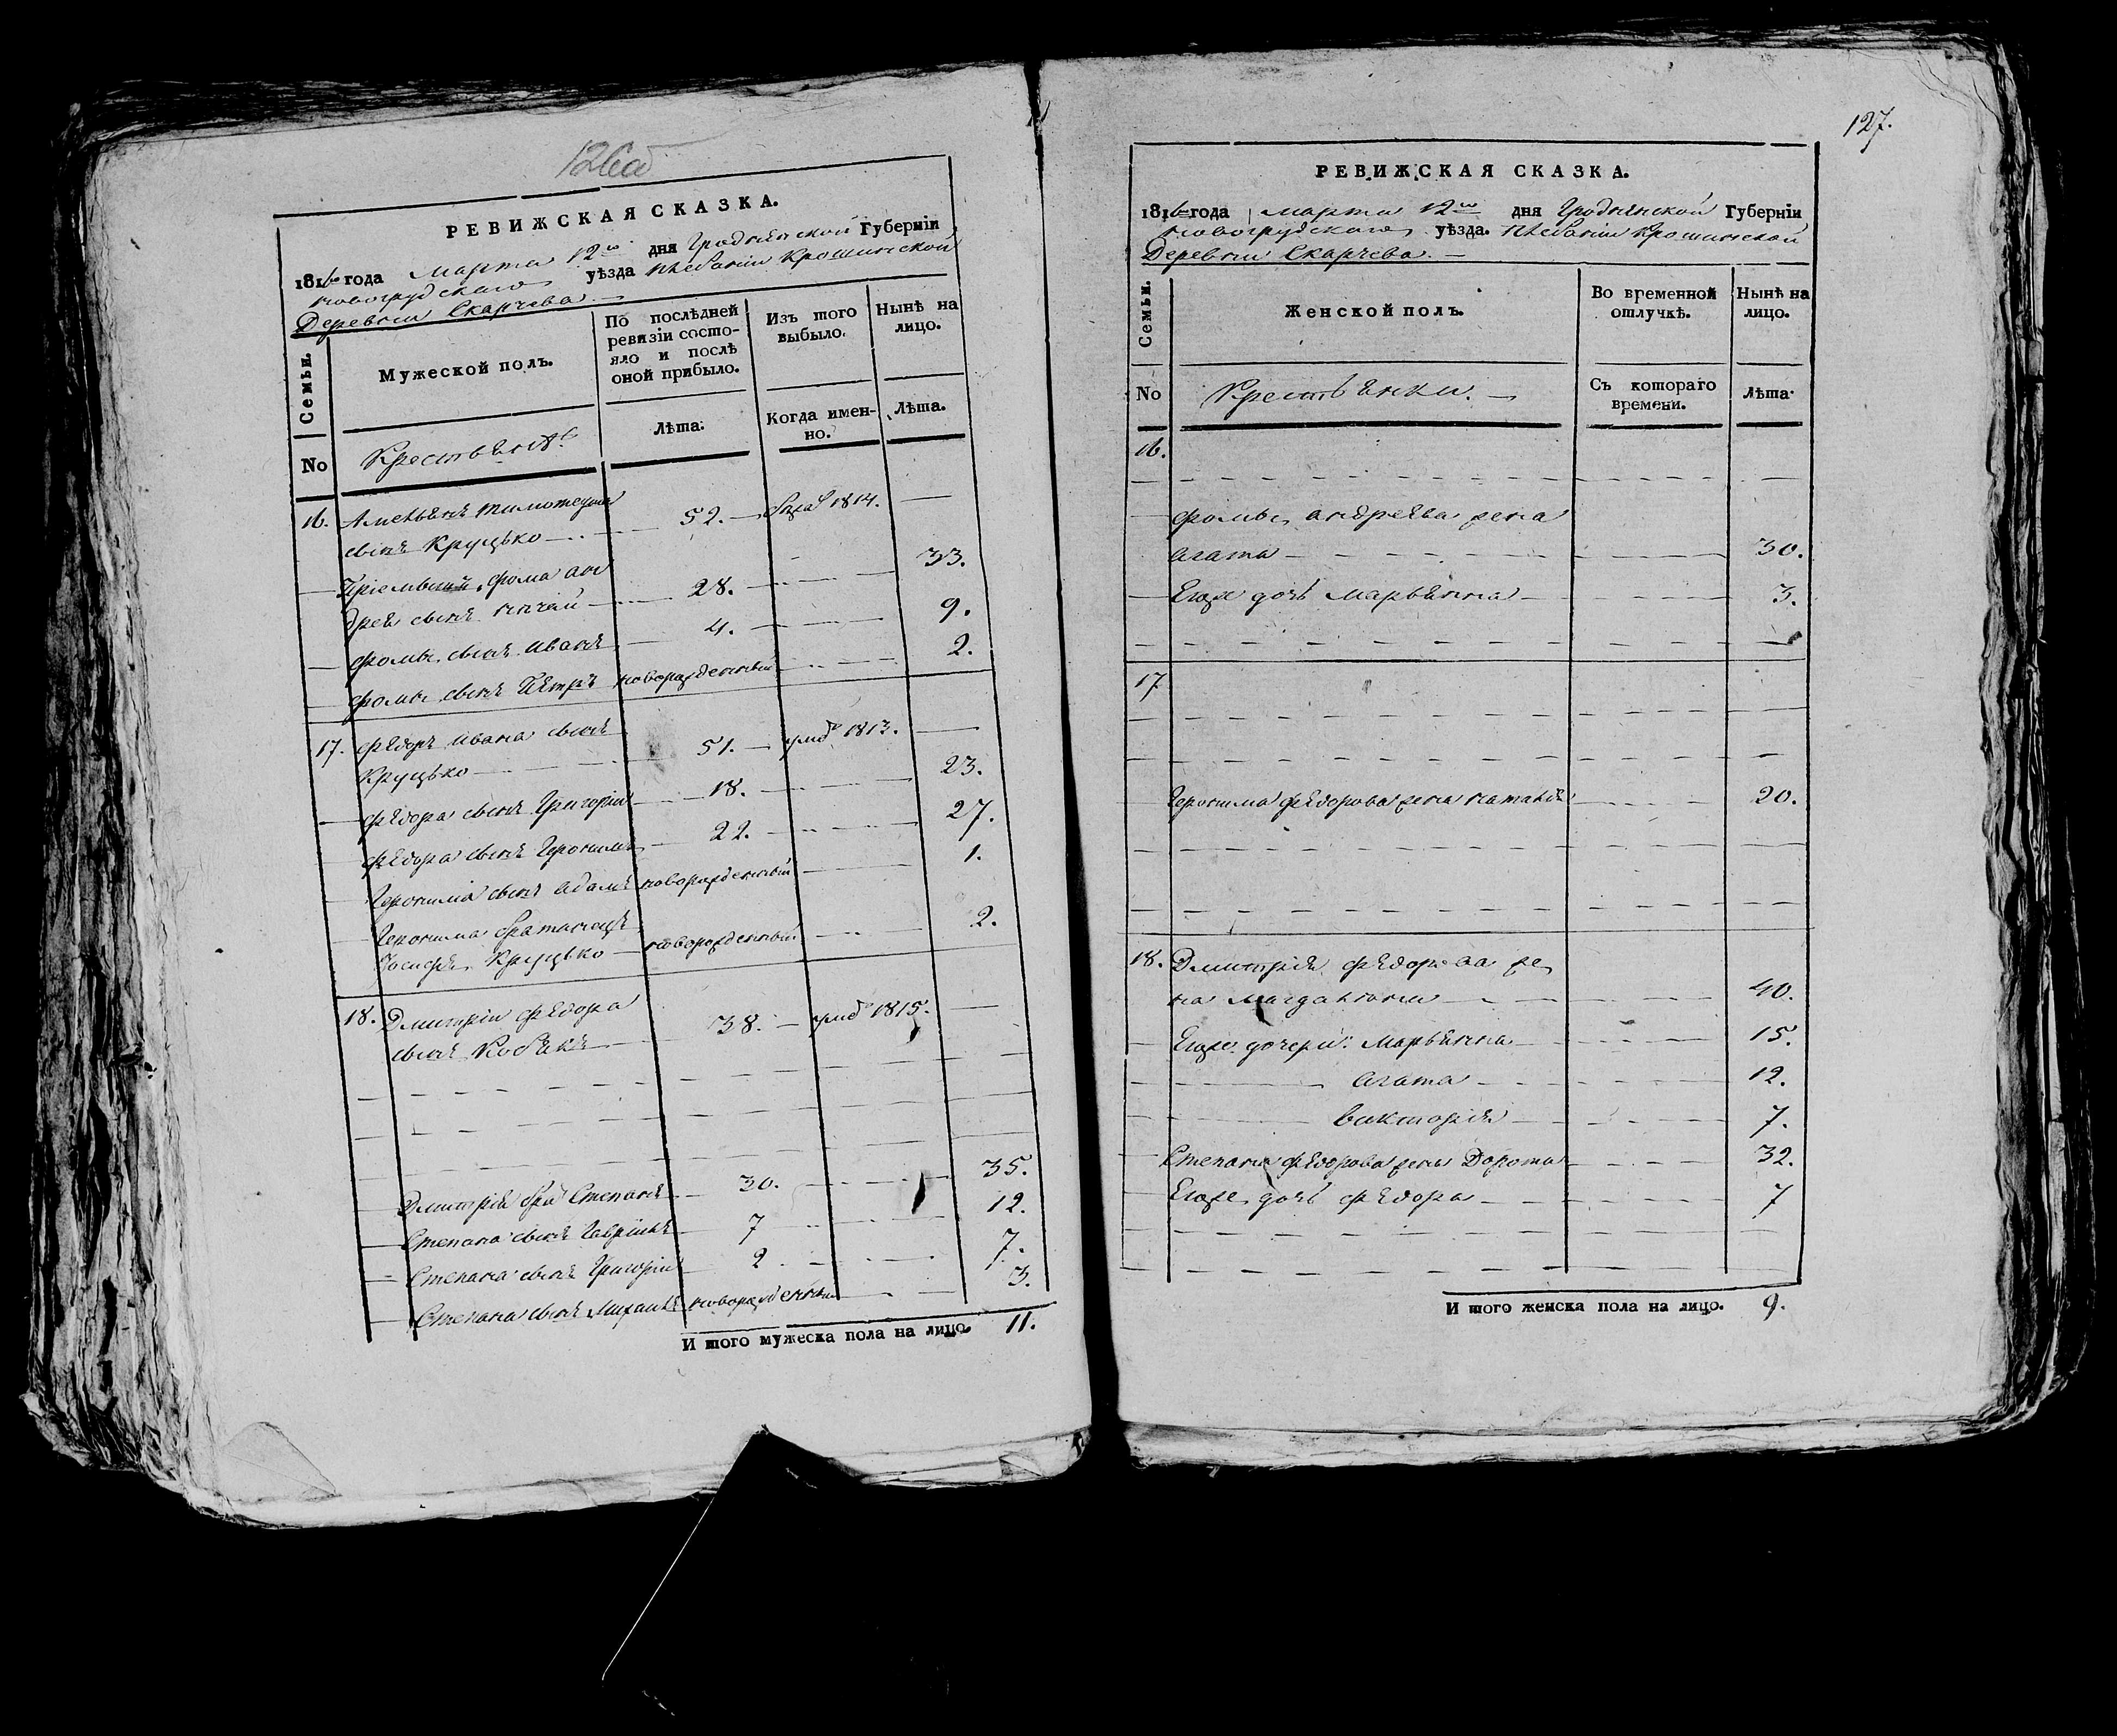 126об
РЕВИЖСКАЯ СКАЗКА.
1816 года Марта 12го дня Гродненской Губерніи
Новогрудского уѣзда Плебаніи Крошинской
Деревни Скарчева
Семьи.
Мужеской полъ.
По послѣдней ревизіи состо-
яло и послѣ оной прибыло.
Изъ того выбыло.
Нынѣ на лицо.
No
Крестьянѣ
Лѣта.
Когда имен-
но.
Лѣта.
16.
сынъ Круцько 52. 1814.
Пріемный Фома Ан
дрея сынъ 28. 33.
Фомы сынъ Иванъ 4. 9.
Фомы сынъ Пётръ новорожденный 2.
17. Фёдоръ Ивана сынъ
Круцько 51. 1813.
Фёдора сынъ Григорій 18. 23.
Фёдора сынъ Геронимъ 22. 27.
Геронима сынъ Адамъ новорожденный 1.
Геронима братанецъ
Іосифъ Круцько новорожденный 2.
18. Дмитрій Фёдора
сынъ Кобякъ 38. 1815.
Дмитрія братъ Степанъ 30. 35.
Степана сынъ Гаврилъ 7 12.
Степана сынъ Григорій 2 7.
Степана сынъ Михаилъ новорожденный 3.
И того мужеска пола на лицо. 11.
127.
РЕВИЖСКАЯ СКАЗКА.
1816 года Марта 12го дня Гродненской Губерніи
Новогрудского уѣзда. Плебаніи Крошинской
Деревни Скарчева.
Семьи.
Женской полъ.
Во временной отлучкѣ.
Нынѣ на лицо.
No
Крестьянки.
Съ котораго времени.
Лѣта.
16.
Фомы Андреева жена
Агата 30.
Еще дочь Марьянна 3.
17
Геронима Фёдорова жена Наталія 20.
18. Дмитрія Фёдорова же
на Магдалена 40.
Еще дочери: Марьянна 15.
Агата 12.
Викторія 7.
Степана Фёдорова жена Дорота 32.
Еще дочь Фёдора 7
И того женска пола на лицо. 9.